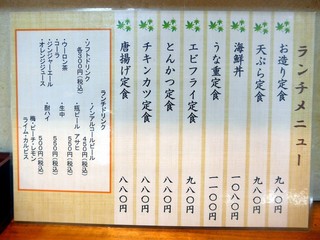 ランチメニュー
お造り定食 九八〇円
天ぷら定食 九八〇円
海鮮丼 一〇八〇円
うな重定食 一一〇〇円
エビフライ定食 九八〇円
とんかつ定食 八八〇円
チキンカツ定食 八八〇円
唐揚げ定食 八八〇円
ランチドリンク
・ノンアルコールビール 450円(税込)
・瓶ビール アサヒ 550円(税込)
・生中 550円(税込)
・酎ハイ 500円(税込)
梅・ピーチ・レモン
ライム・カルピス
・ソフトドリンク
各300円(税込)
・ウーロン茶
・コーラ
・ジンジャーエール
・オレンジジュース